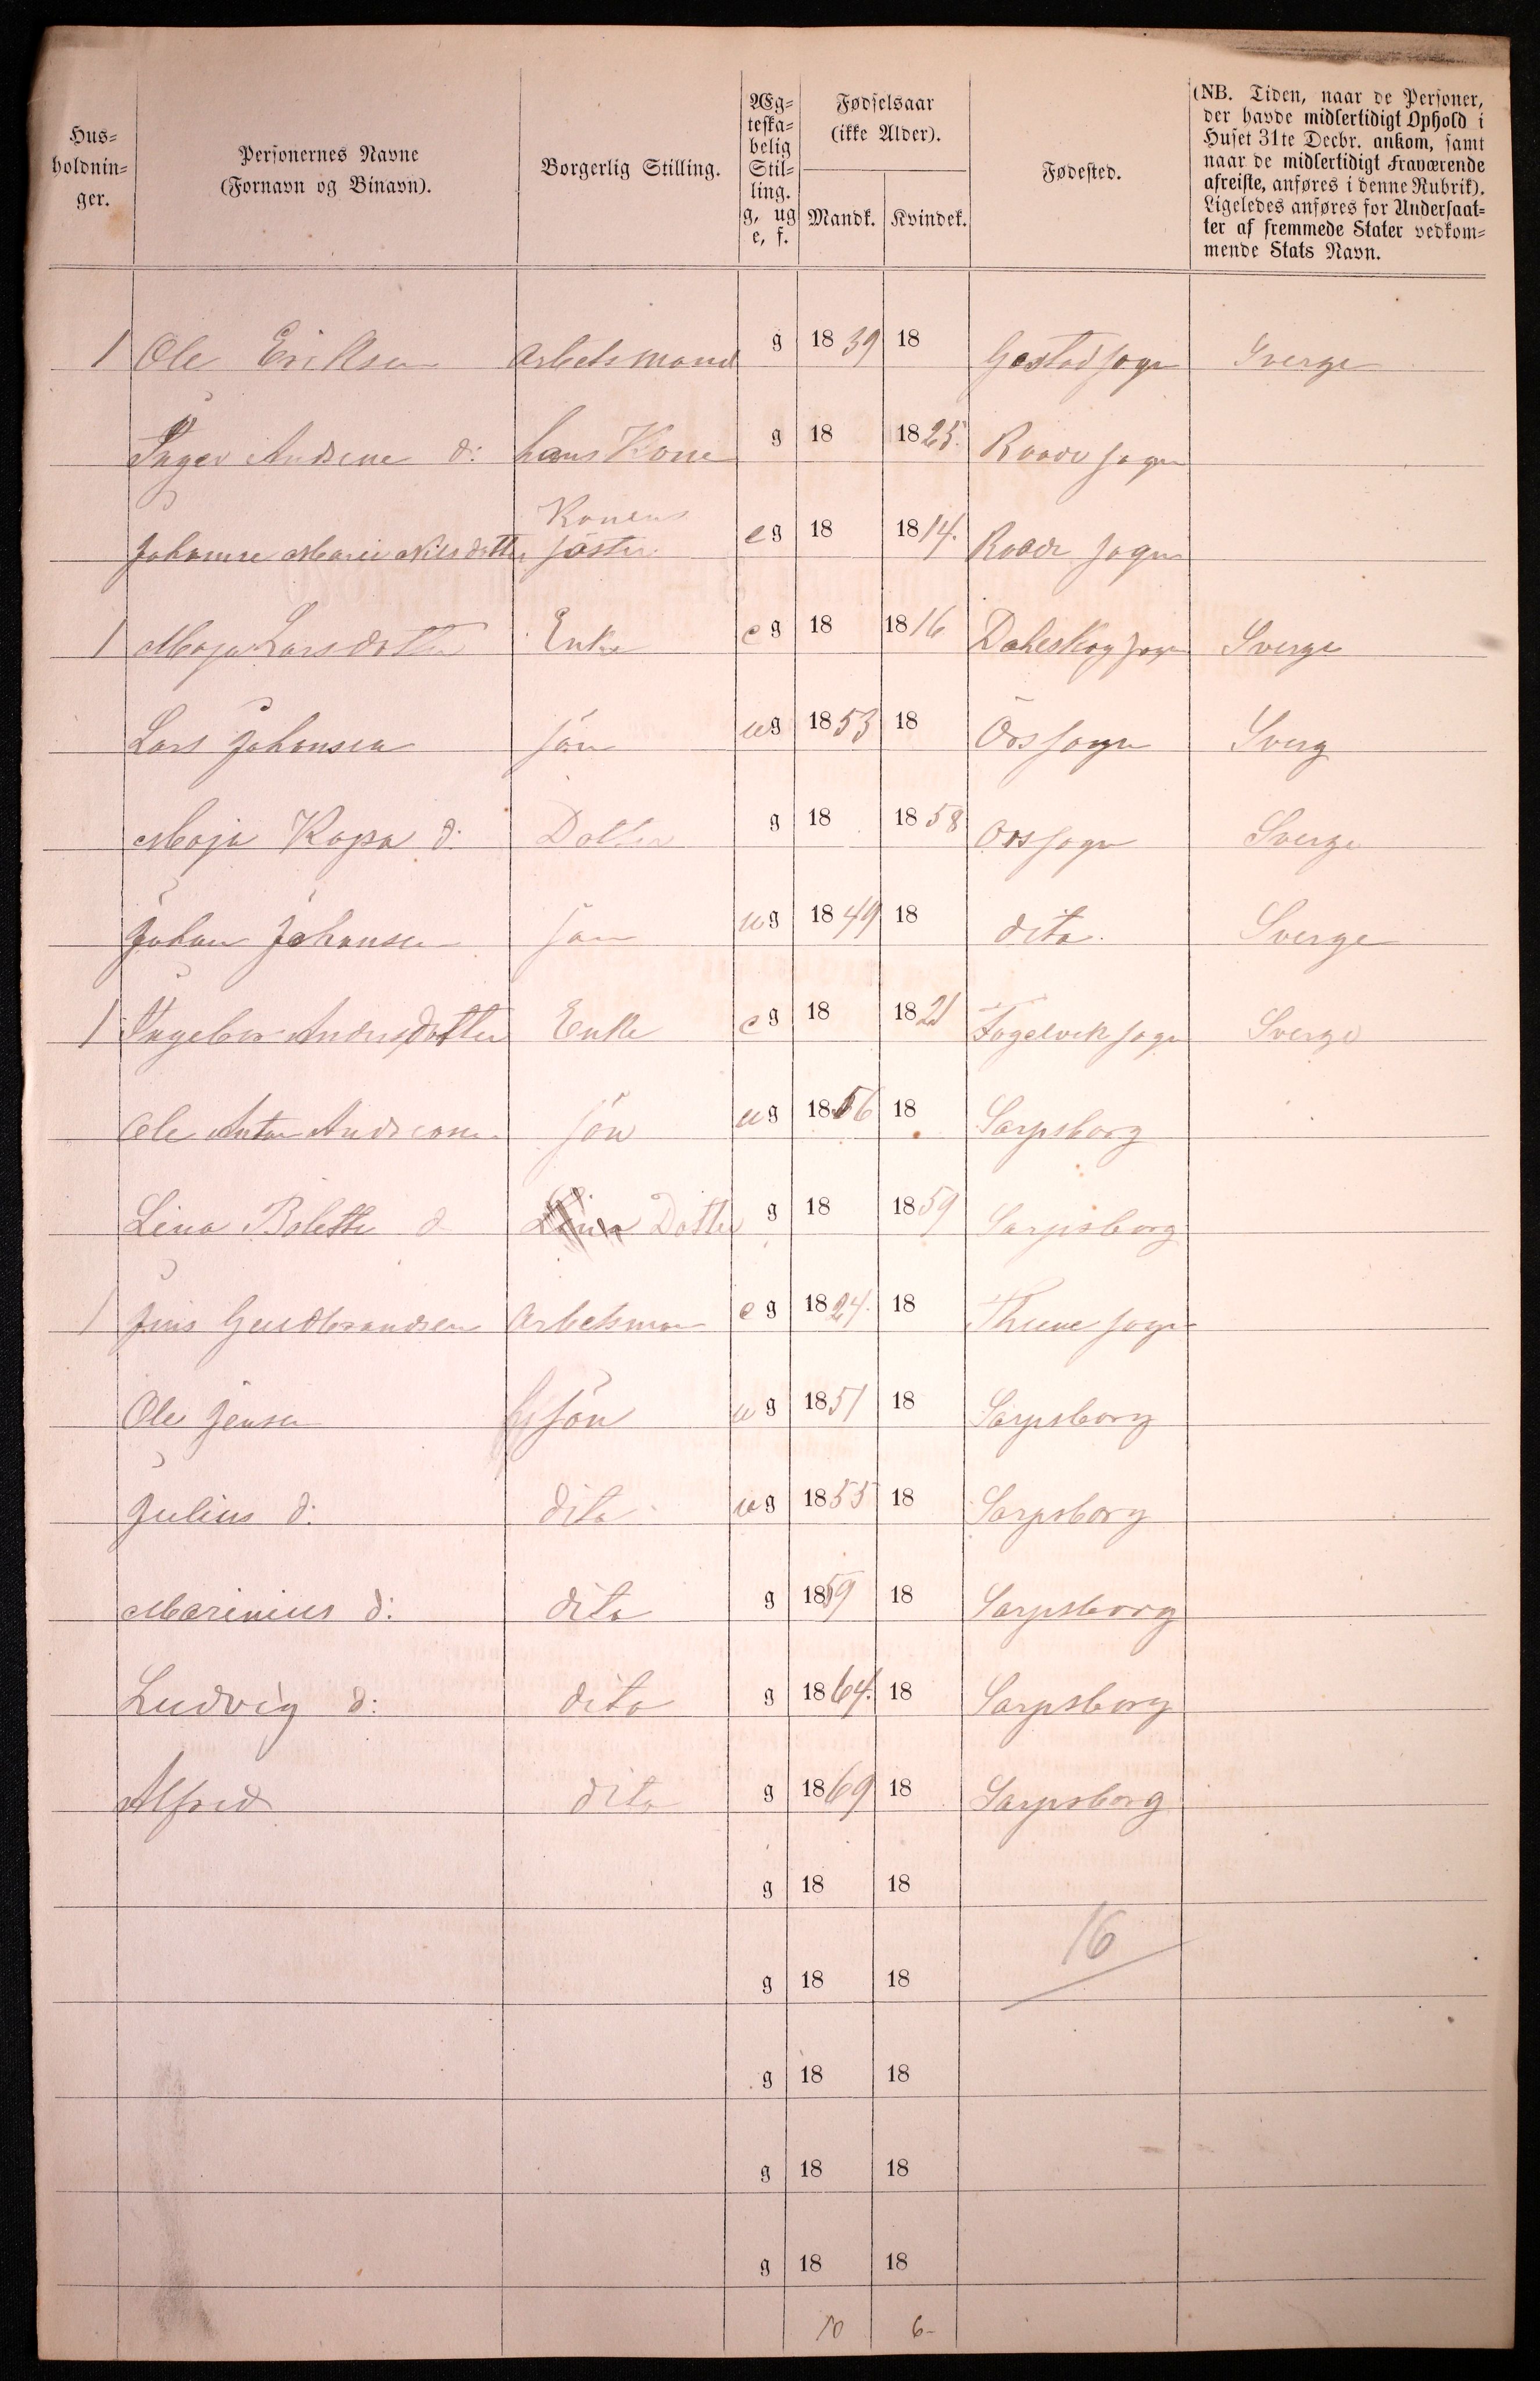 Hus-
holdnin-
ger.
Personernes Navne
(Fornavn og Binavn).
Borgerlig Stilling.
Æg-
teska-
belig
Stil-
ling.
g, ug
e, f.
Fødselsaar
(ikke Alder).
Mandk. Kvindek.
Fødested.
(NB. Tiden, naar de Personer,
der havde midlertidigt Ophold i
Huset 31te Decbr. ankom, samt
naar de midlertidigt Fraværende
afreiste, anføres i denne Rubrik).
Ligeledes anføres for Undersaat-
ter af fremmede Stater vedkom-
mende Stats Navn.
1 Ole Eriksen Arbetsmand g 1839 18 sogn Sverge
Inger Andrine d: hans Kone g 18 1825. Raade sogn
Konens
Johanne Marie Nilsdatter söster eg 18 1814. Raade sogn
1 Maja Larsdotter Enke eg 18 1816 Daleskog sogn Sverge
Lars Johansen sön ug 1853 18 Örs sogn Sverg
Maja Kajsa d: Dotter g 18 1858 Ors sogn Sverge
Johan Johansen sön ug 1849 18 dito. Sverge
1 Ingebor Andersdotter Enke eg 18 1821 Fogelvik sogn Sverge
Ole Anton sön ug 1856 18 Sarpsborg
Lina Bolette d Dotter g 18 1859 Sarpsborg
1 Jens Gudbrandsen Arbetsman eg 1824. 18 Thune sogn
Ole Jensen sön ug 1851 18 Sarpsborg
Julius d: dito ug 1855 18 Sarpsborg
Marinius d: dito g 1859 18 Sarpsborg
Ludvig d: dito g 1864. 18 Sarpsborg
Alfred dito g 1869 18 Sarpsborg
g 18 18
16
g 18 18
g 18 18
g 18 18
g 18 18
10 6-